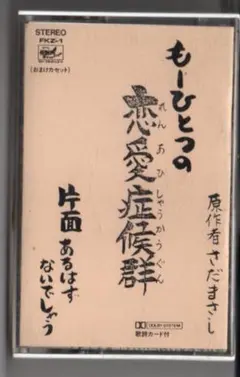 STEREO
FKZ-1
(おまけカセット)
もーひとつの
恋愛症候群
れんあひしゃうかうぐん
原作者 さだまさし
片面 あるはず
ないでしょう
DOLBY SYSTEM
歌詞カード付